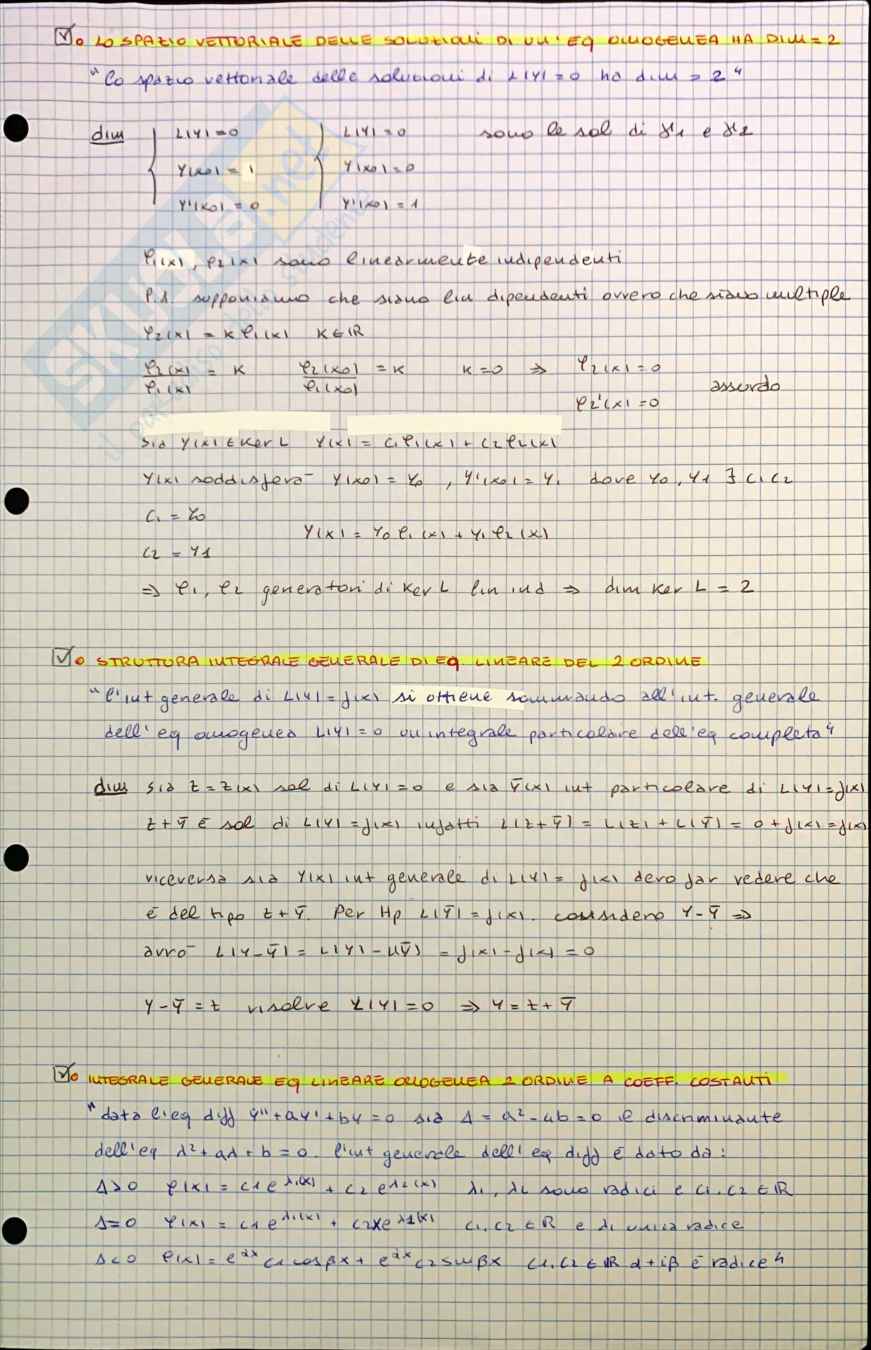 o LO SPAZIO VETTORIALE DELLE SOLUZIONI DI UN'EQ OMOGENEA HA DIM = 2
"Lo spazio vettoriale delle soluzioni di L(Y)=0 ha dim = 2"
dim { L(Y)=0 { L(Y)=0 sono le sol di
Y(x0)=1 Y(x0)=0
Y'(x0)=0 Y'(x0)=1
φ1(x), φ2(x) sono linearmente indipendenti
P.A. supponiamo che siano lin dipendenti ovvero che siano multiple
φ2(x) = K φ1(x) K∈ℝ
φ2(x)/φ1(x) = K φ2(x0)/φ1(x0) = K K=0 ⇒ φ2(x)=0
φ2'(x)=0 assurdo
Sia Y(x) ∈ Ker L Y(x) = C1φ1(x) + C2φ2(x)
Y(x) soddisferà Y(x0) = Y0, Y'(x0) = Y1 dove Y0, Y1 ∃ C1 C2
C1 = Y0
Y(x) = Y0 φ1(x) + Y1 φ2(x)
C2 = Y1
⇒ φ1, φ2 generatori di Ker L lin ind ⇒ dim Ker L = 2
o STRUTTURA INTEGRALE GENERALE DI EQ. LINEARE DEL 2 ORDINE
"l'int generale di L(Y)=f(x) si ottiene sommando all'int. generale
dell'eq omogenea L(Y)=0 un integrale particolare dell'eq completa"
dim Sia z=z(x) sol di L(Y)=0 e sia Ȳ(x) int particolare di L(Y)=f(x)
z+Ȳ è sol di L(Y)=f(x) infatti L(z+Ȳ) = L(z) + L(Ȳ) = 0 + f(x) = f(x)
viceversa sia Y(x) int generale di L(Y) = f(x) devo far vedere che
è del tipo z+Ȳ. Per Hp L(Ȳ)=f(x). considero Y-Ȳ ⇒
avrò L(Y-Ȳ) = L(Y) - L(Ȳ) = f(x) - f(x) = 0
Y-Ȳ = z risolve L(Y)=0 ⇒ Y = z+Ȳ
o INTEGRALE GENERALE EQ LINEARE OMOGENEA 2 ORDINE A COEFF. COSTANTI
"data l'eq diff Y''+aY'+bY=0 sia Δ = a²-4b=0 il discriminante
dell'eq λ²+aλ+b=0. l'int generale dell'eq diff è dato da:
Δ>0 φ(x) = C1 e^λ1(x) + C2 e^λ2(x) λ1, λ2 sono radici e C1, C2 ∈ ℝ
Δ=0 φ(x) = C1 e^λ1(x) + C2 x e^λ1(x) C1, C2 ∈ ℝ e λ1 unica radice
Δ<0 φ(x) = e^αx C1 cosβx + e^αx C2 sinβx C1, C2 ∈ ℝ α+iβ è radice"